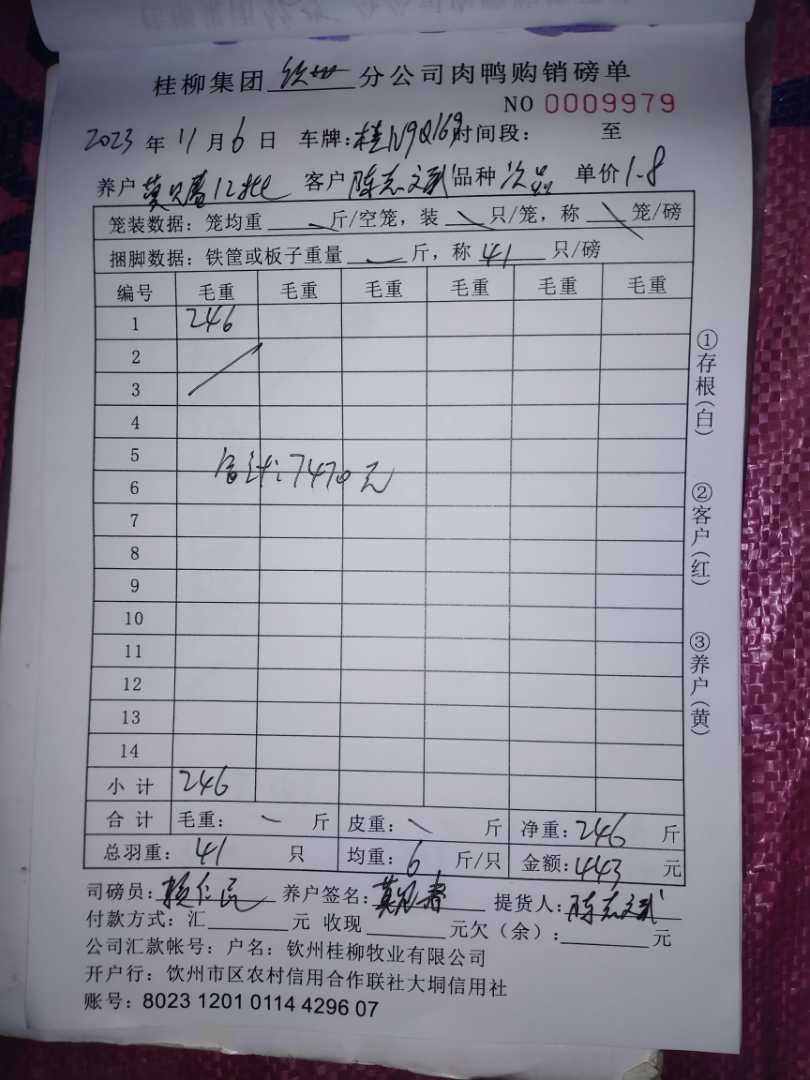 桂柳集团 钦州 分公司肉鸭购销磅单
NO 0009979
2023 年 11 月 6 日 车牌：桂N9Q169 时间段： 至
养户 莫 12批 客户 陈志文武 品种 次品 单价 1.8
笼装数据：笼均重 斤/空笼，装 只/笼，称 笼/磅
捆脚数据：铁筐或板子重量 斤，称 41 只/磅
编号 毛重 毛重 毛重 毛重 毛重 毛重
1 246
2
3
4
5
合计：7470元
6
7
8
9
10
11
12
13
14
小 计 246
合 计 毛重： 斤 皮重： 斤 净重：246 斤
总羽重： 41 只 均重：6 斤/只 金额：443 元
司磅员：杨仁民 养户签名：莫 提货人：陈志文武
付款方式：汇 元 收现 元欠（余）： 元
公司汇款帐号：户名：钦州桂柳牧业有限公司
开户行：钦州市区农村信用合作联社大垌信用社
账号：8023 1201 0114 4296 07
①存根（白）
②客户（红）
③养户（黄）